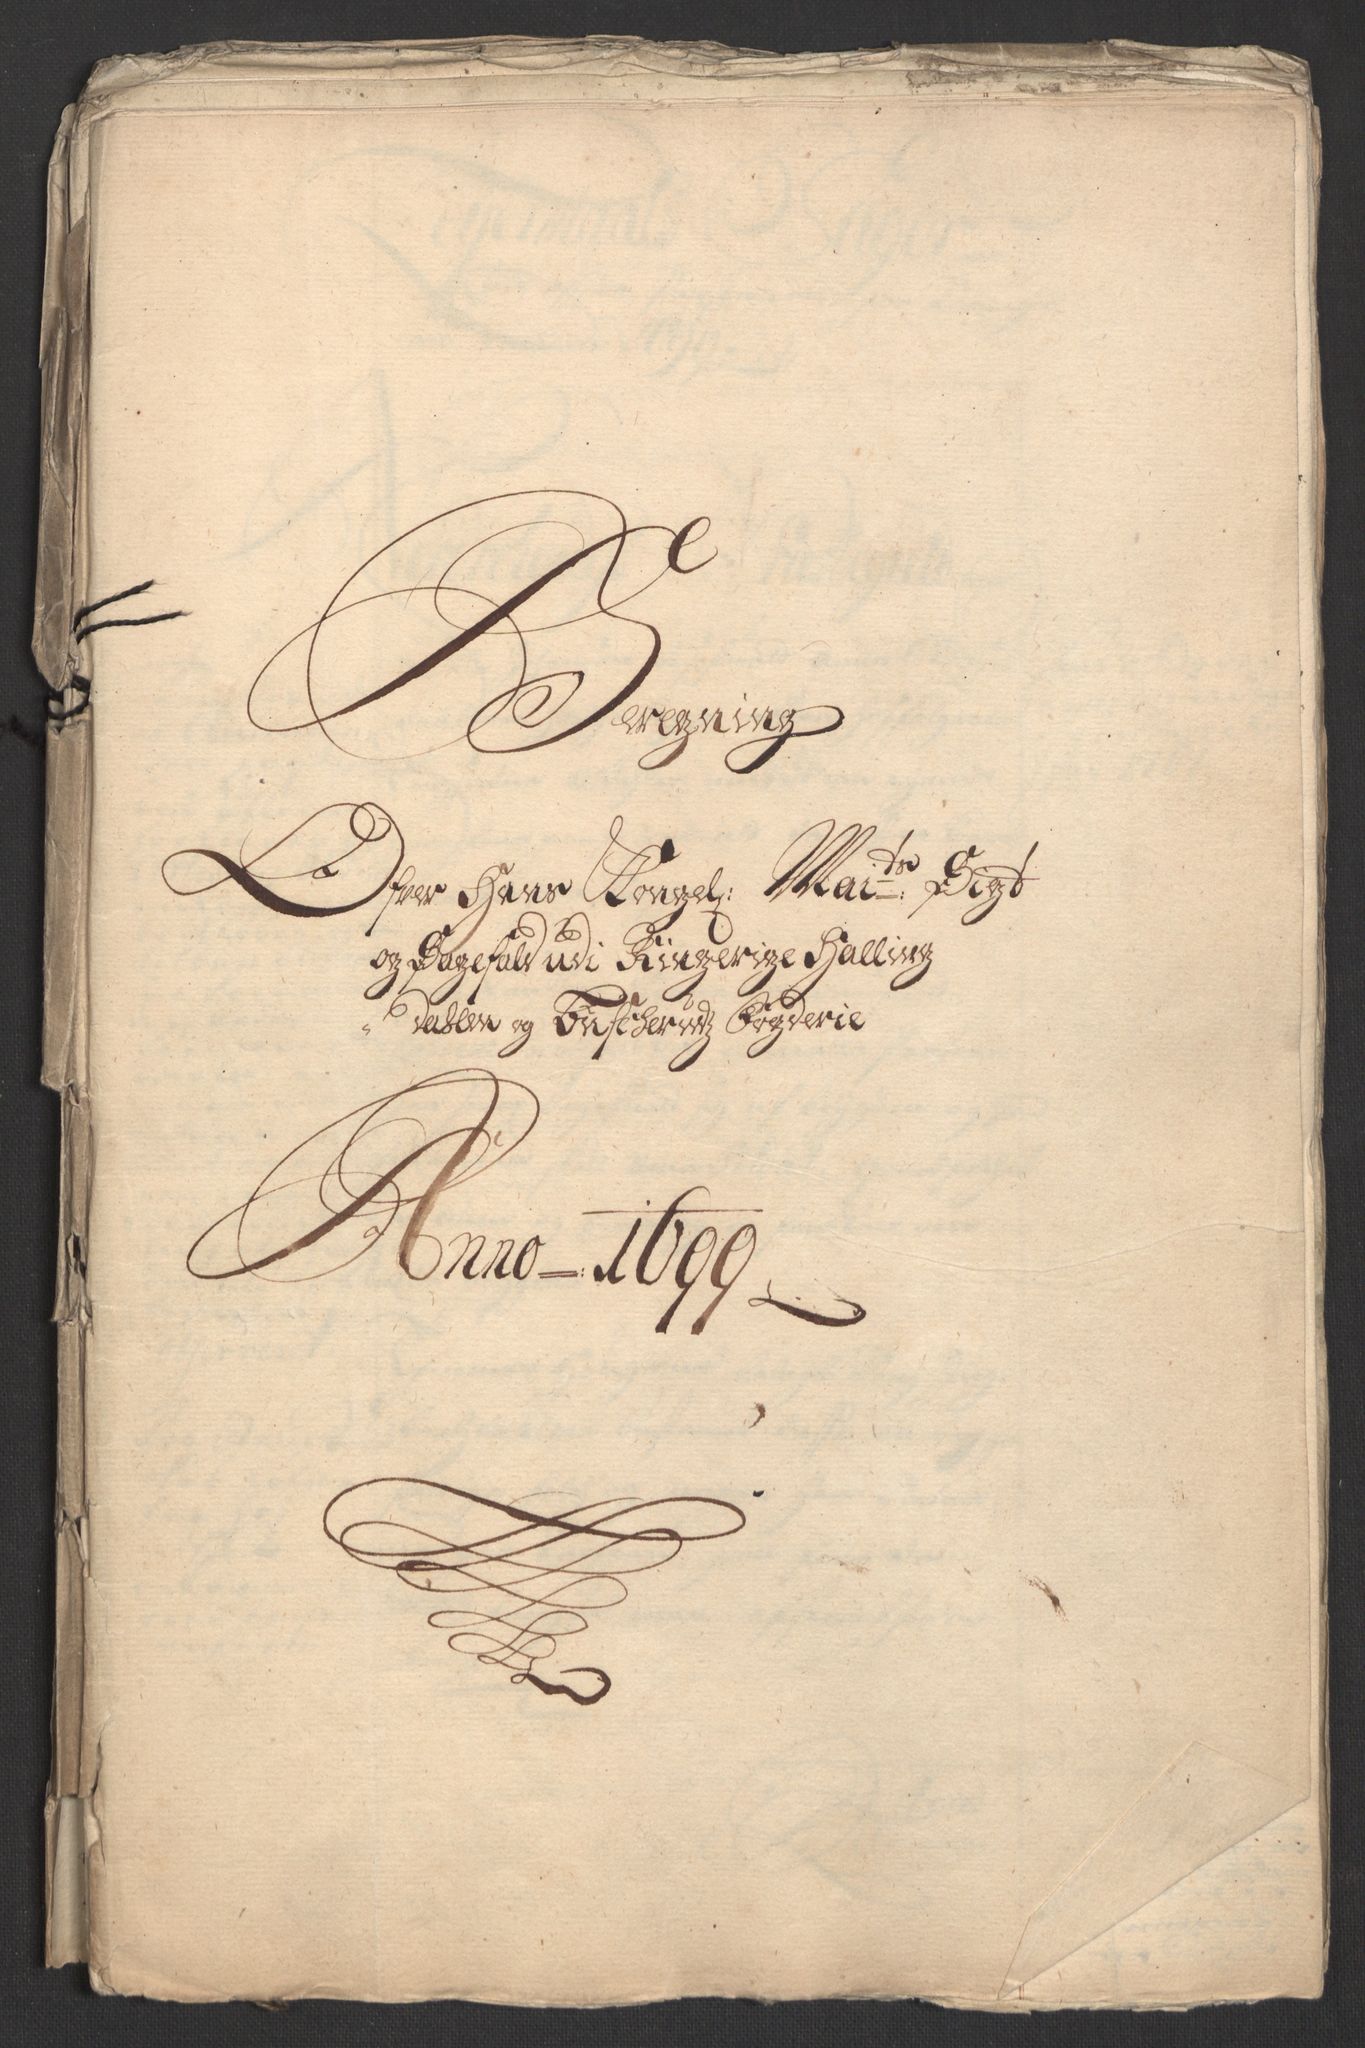 Beregning
Ofver Hans Kongel: Maits: Sigt
og Sagefald udi Ringerige Halling
" dahlen og Buscherudz Fogderie
Anno 1699